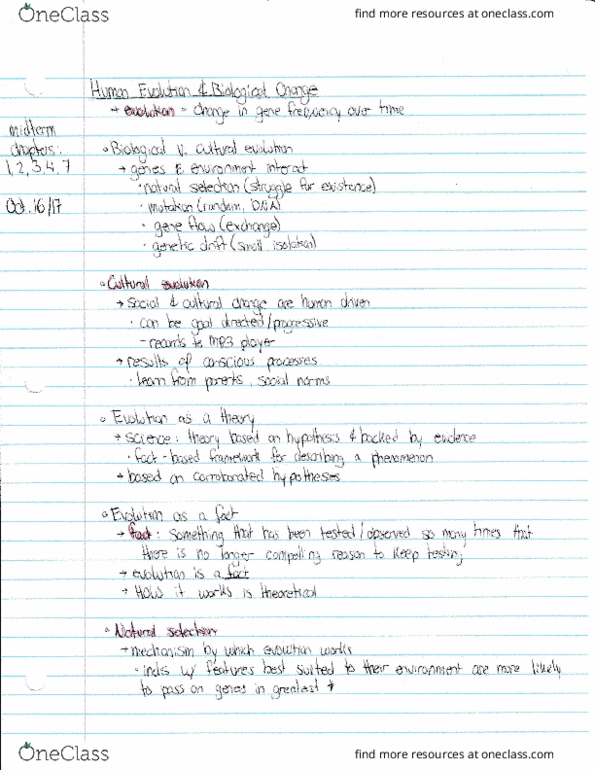 OneClass
find more resources at oneclass.com
Human Evolution & Biological Change
→ evolution = change in gene frequency over time
midterm
chapters:
1, 2, 3, 4, 7
Oct. 16/17
Biological v. cultural evolution
→ genes & environment interact
· natural selection (struggle for existence)
· mutation (random, DNA)
· gene flow (exchange)
· genetic drift (small, isolation)
Cultural evolution
→ social & cultural change are human driven
· can be goal directed/progressive
- records to mp3 player
→ results of conscious processes
· learn from parents, social norms
Evolution as a theory
→ science: theory based on hypothesis & backed by evidence
· fact-based framework for describing a phenomenon
→ based on corroborated hypotheses
Evolution as a fact
→ fact: something that has been tested/observed so many times that
there is no longer compelling reason to keep testing
→ evolution is a fact
→ HOW it works is theoretical
Natural selection
→ mechanism by which evolution works
· indis w/ features best suited to their environment are more likely
to pass on genes in greatest
OneClass
find more resources at oneclass.com